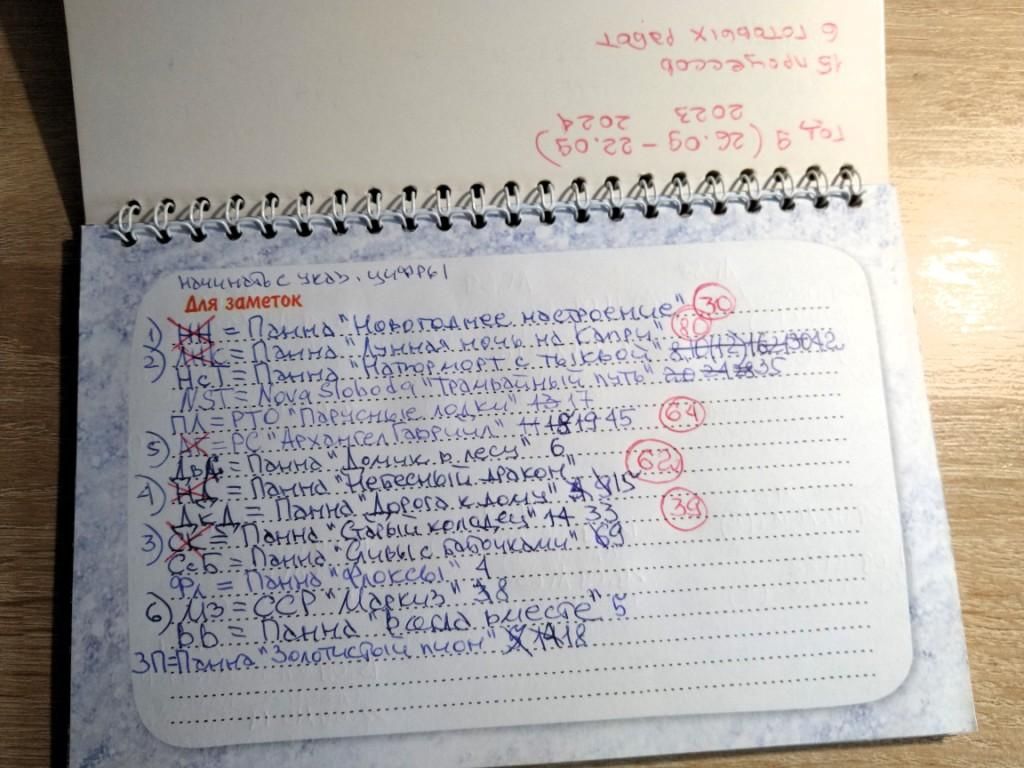 6 готовых работ
15 процессов
2023 2024
год 9 (26.09 - 22.09)
начинать с указ. цифры
Для заметок
1) НН = Панна "Новогоднее настроение" 30
2) = Панна "Лунная ночь на Капри" 80
НсТ = Панна "Натюрморт с тыквой" 42
NST = Nova Sloboda "Трамвайный путь" 35
ПЛ = РТО "Парусные лодки" 13 17
5) = РС "Архангел Гавриил" 18 19 45 64
ДвЛ = Панна "Домик в лесу" 6
4) НД = Панна "Небесный дракон" 62
ДкД = Панна "Дорога к дому" 15
3) СК = Панна "Старый колодец" 14 33 39
СсБ = Панна "Сливы с бабочками" 69
Фл = Панна "Флоксы" 4
6) Мз = ССР "Маркиз" 38
ВВ = Панна "Всегда вместе" 5
ЗП = Панна "Золотистый пион" 14 18